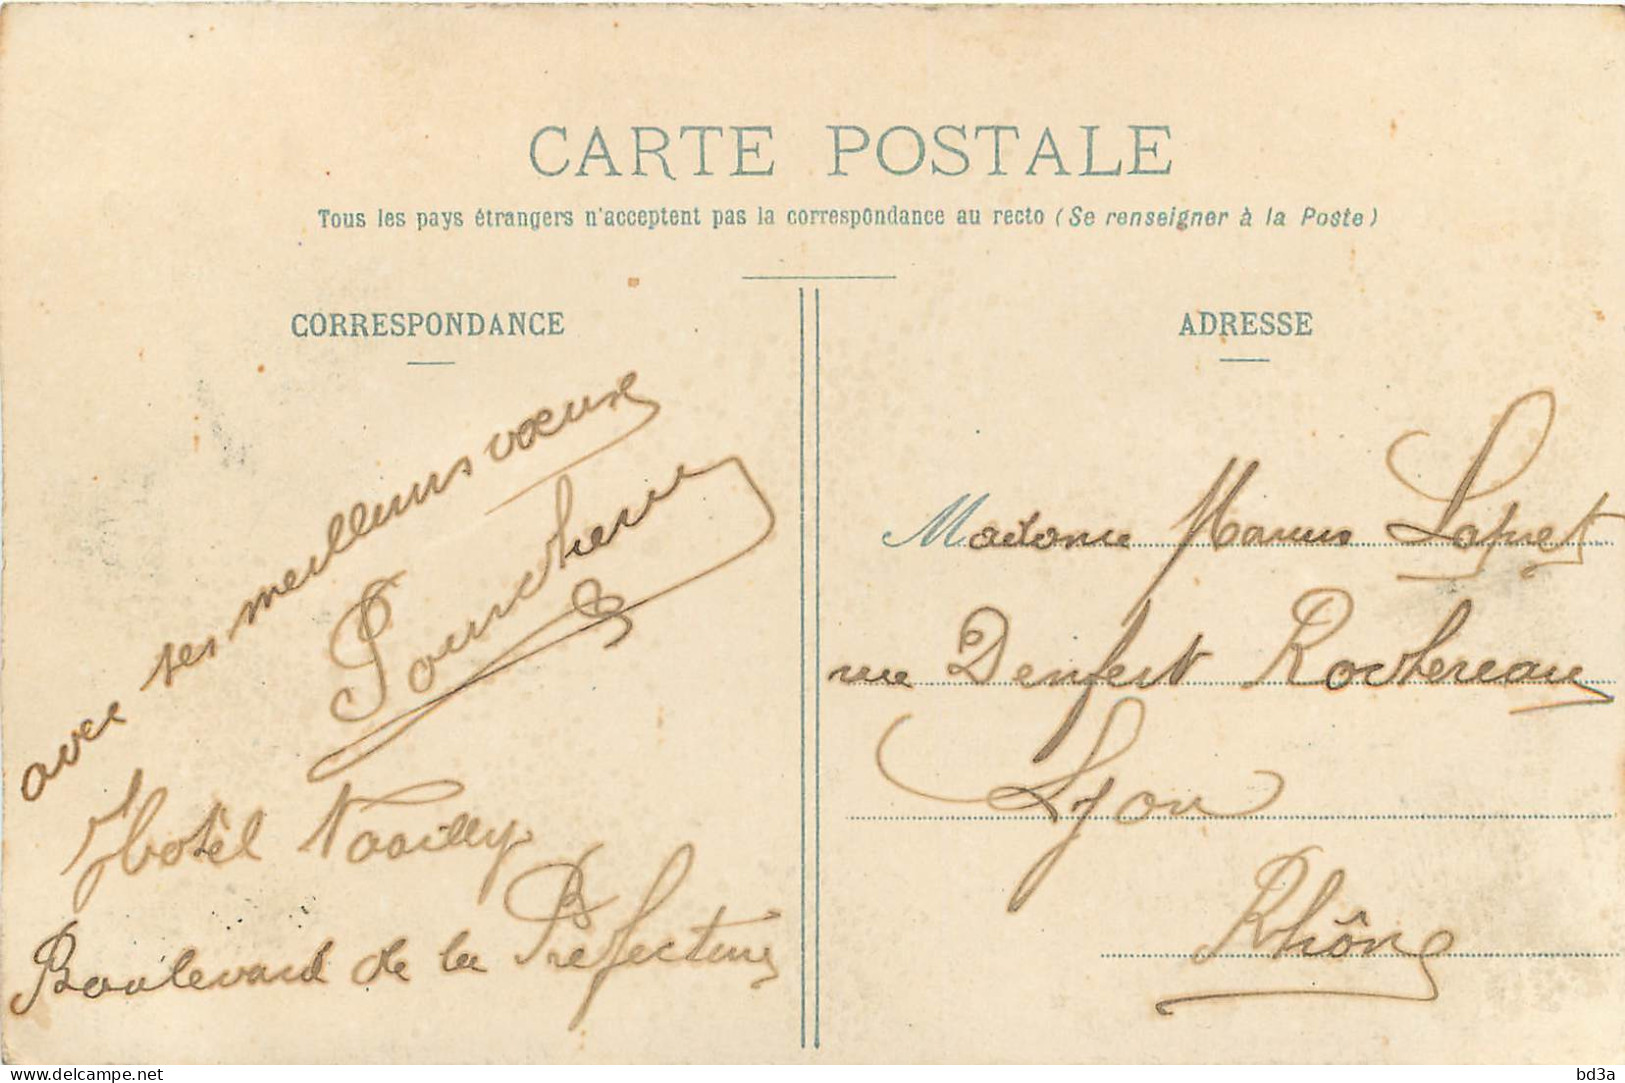 CARTE POSTALE
Tous les pays étrangers n'acceptent pas la correspondance au recto (Se renseigner à la Poste)
CORRESPONDANCE
avec ses meilleurs vœux
Hotêl Noailly
Boulevard de la Préfecture
ADRESSE
Madame Marius Lapret
rue Denfert Rochereau
Lyon
Rhône
www.delcampe.net
bd3a